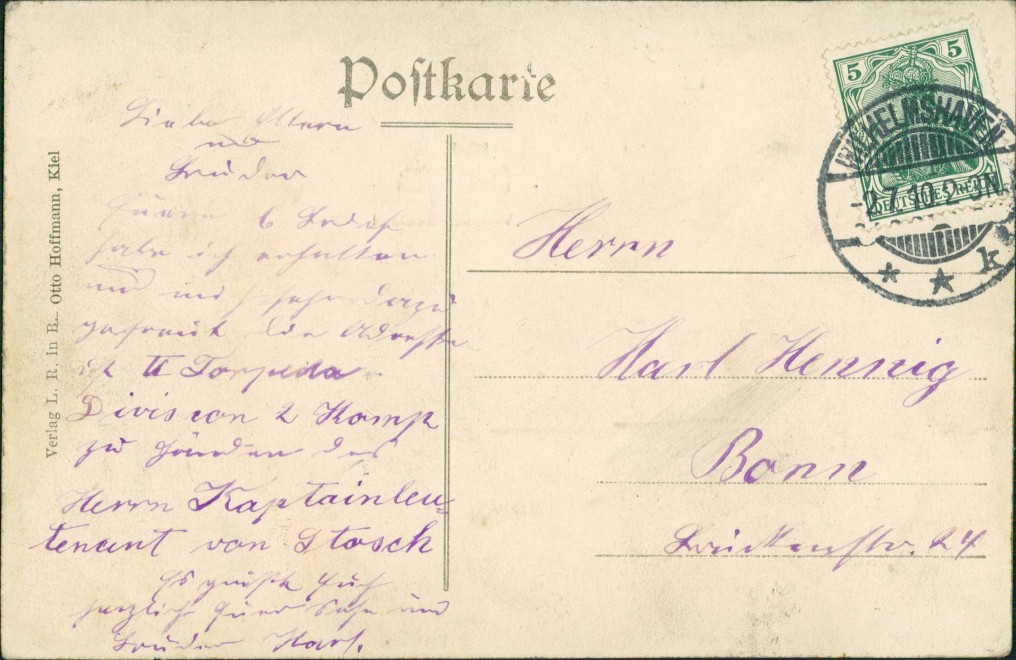 Postkarte
Liebe Eltern
und
Bruder
Euern 6 Brief
habe ich erhalten
und mich sehr dazu
gefreut die Adresse
ist II Torpedo
Division 2 Komp
zu Händen des
Herrn Kaptainleu-
tenant von Stosch
Es grüßt Euch
herzlich Euer Sohn und
Bruder Karl.
Verlag L. R. in B. Otto Hoffmann, Kiel
5 5
DEUTSCHES REICH
WILHELMSHAVEN
7.10.
* * k
Herrn
Karl Hennig
Bonn
Brückenstr. 24